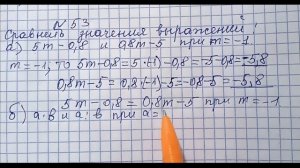 N 53
Сравнить значения выражений:
а) 5m-0,8 и 0,8m-5 при m=-1.
m=-1, то 5m-0,8=5·(-1)-0,8=-5-0,8=-5,8
0,8m-5=0,8·(-1)-5=-0,8-5=-5,8
5m-0,8=0,8m-5 при m=-1.
б) а·в и а:в при а=